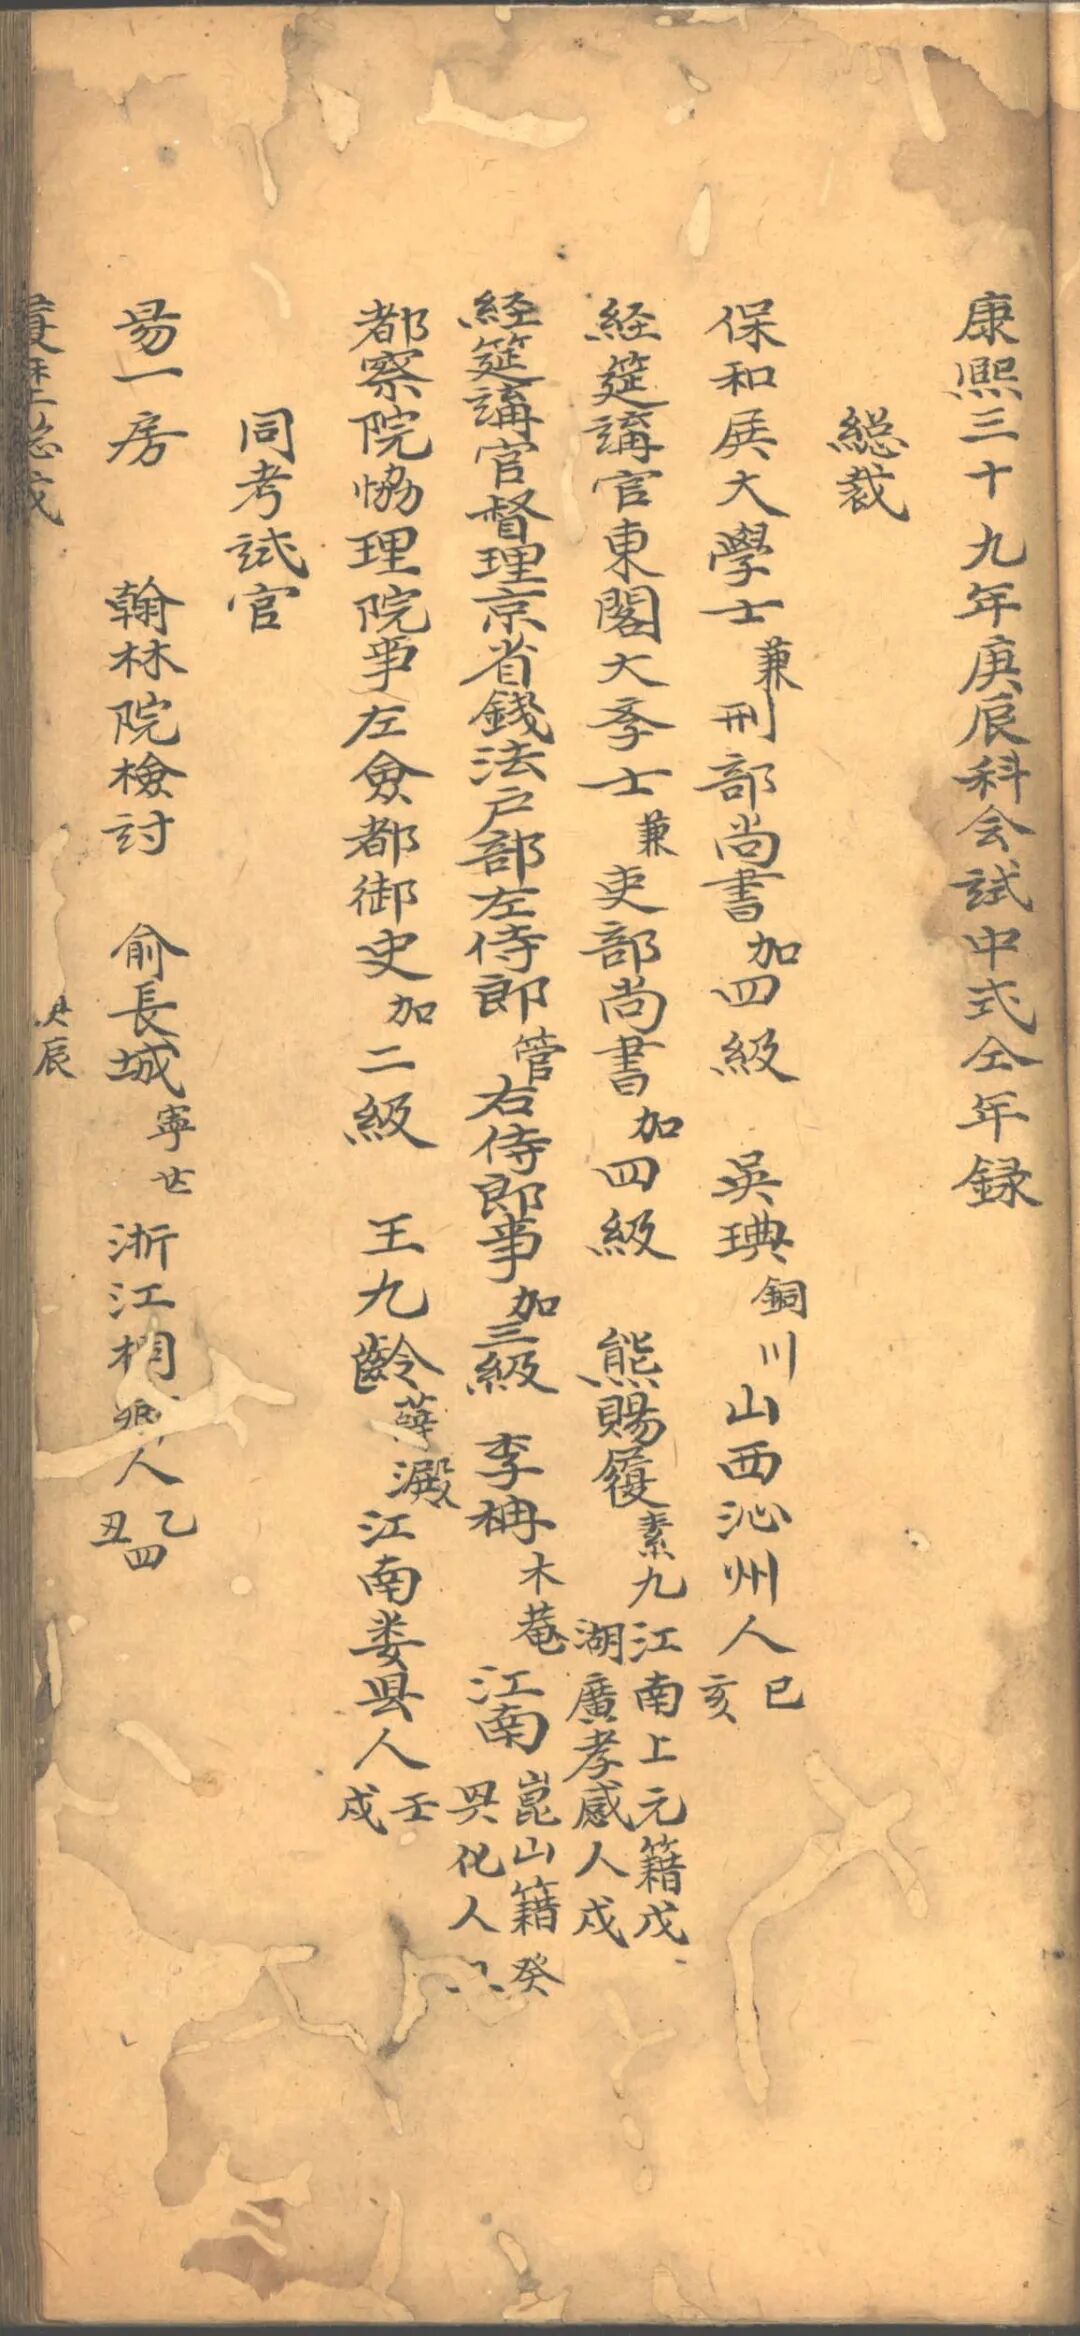 康熙三十九年庚辰科会試中式仝年録
総裁
保和殿大學士兼刑部尚書加四級 吳琠銅川山西沁州人己亥
経筵講官東閣大季士兼吏部尚書加四級 熊賜履素九江南上元籍湖廣孝感人戊戌
経筵講官督理京省錢法户部左侍郎管右侍郎事加三級 李柟木菴江南崑山籍興化人癸
都察院協理院事左僉都御史加二級 王九齡薛澱江南娄县人壬戌
同考試官
易一房 翰林院檢討 俞長城寧世浙江桐鄉人乙丑四
庚辰